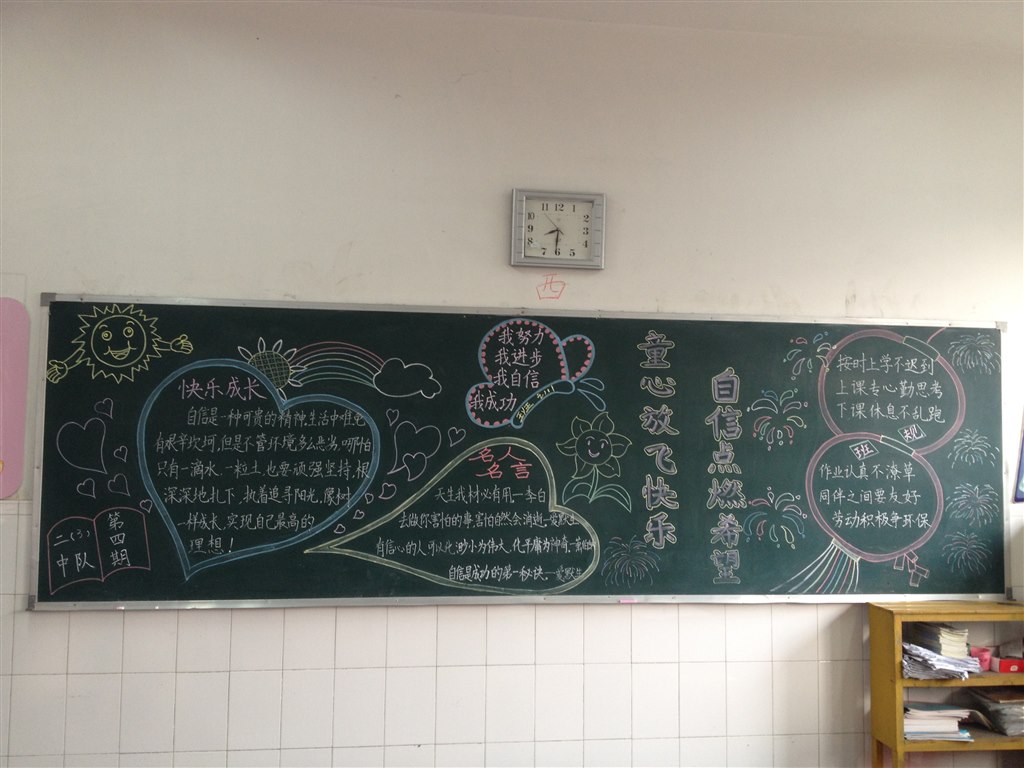 11 12 1
10 2
9 3
8 4
7 6 5
西
快乐成长
自信是一种可贵的精神,生活中难免
有艰辛坎坷,但是不管环境多么恶劣,哪怕
只有一滴水、一粒土也要顽强坚持,根
深深地扎下,执着追寻阳光,像树
一样成长,实现自己最高的
理想!
二(3)
中队
第四期
我努力
我进步
我自信
我成功
名人
名言
天生我材必有用—李白
去做你害怕的事,害怕自然会消逝—爱默生
有信心的人,可以化渺小为伟大,化平庸为神奇
自信是成功的第一秘诀—爱默生
童心放飞快乐
自信点燃希望
按时上学不迟到
上课专心勤思考
下课休息不乱跑
班规
作业认真不潦草
同伴之间要友好
劳动积极争环保